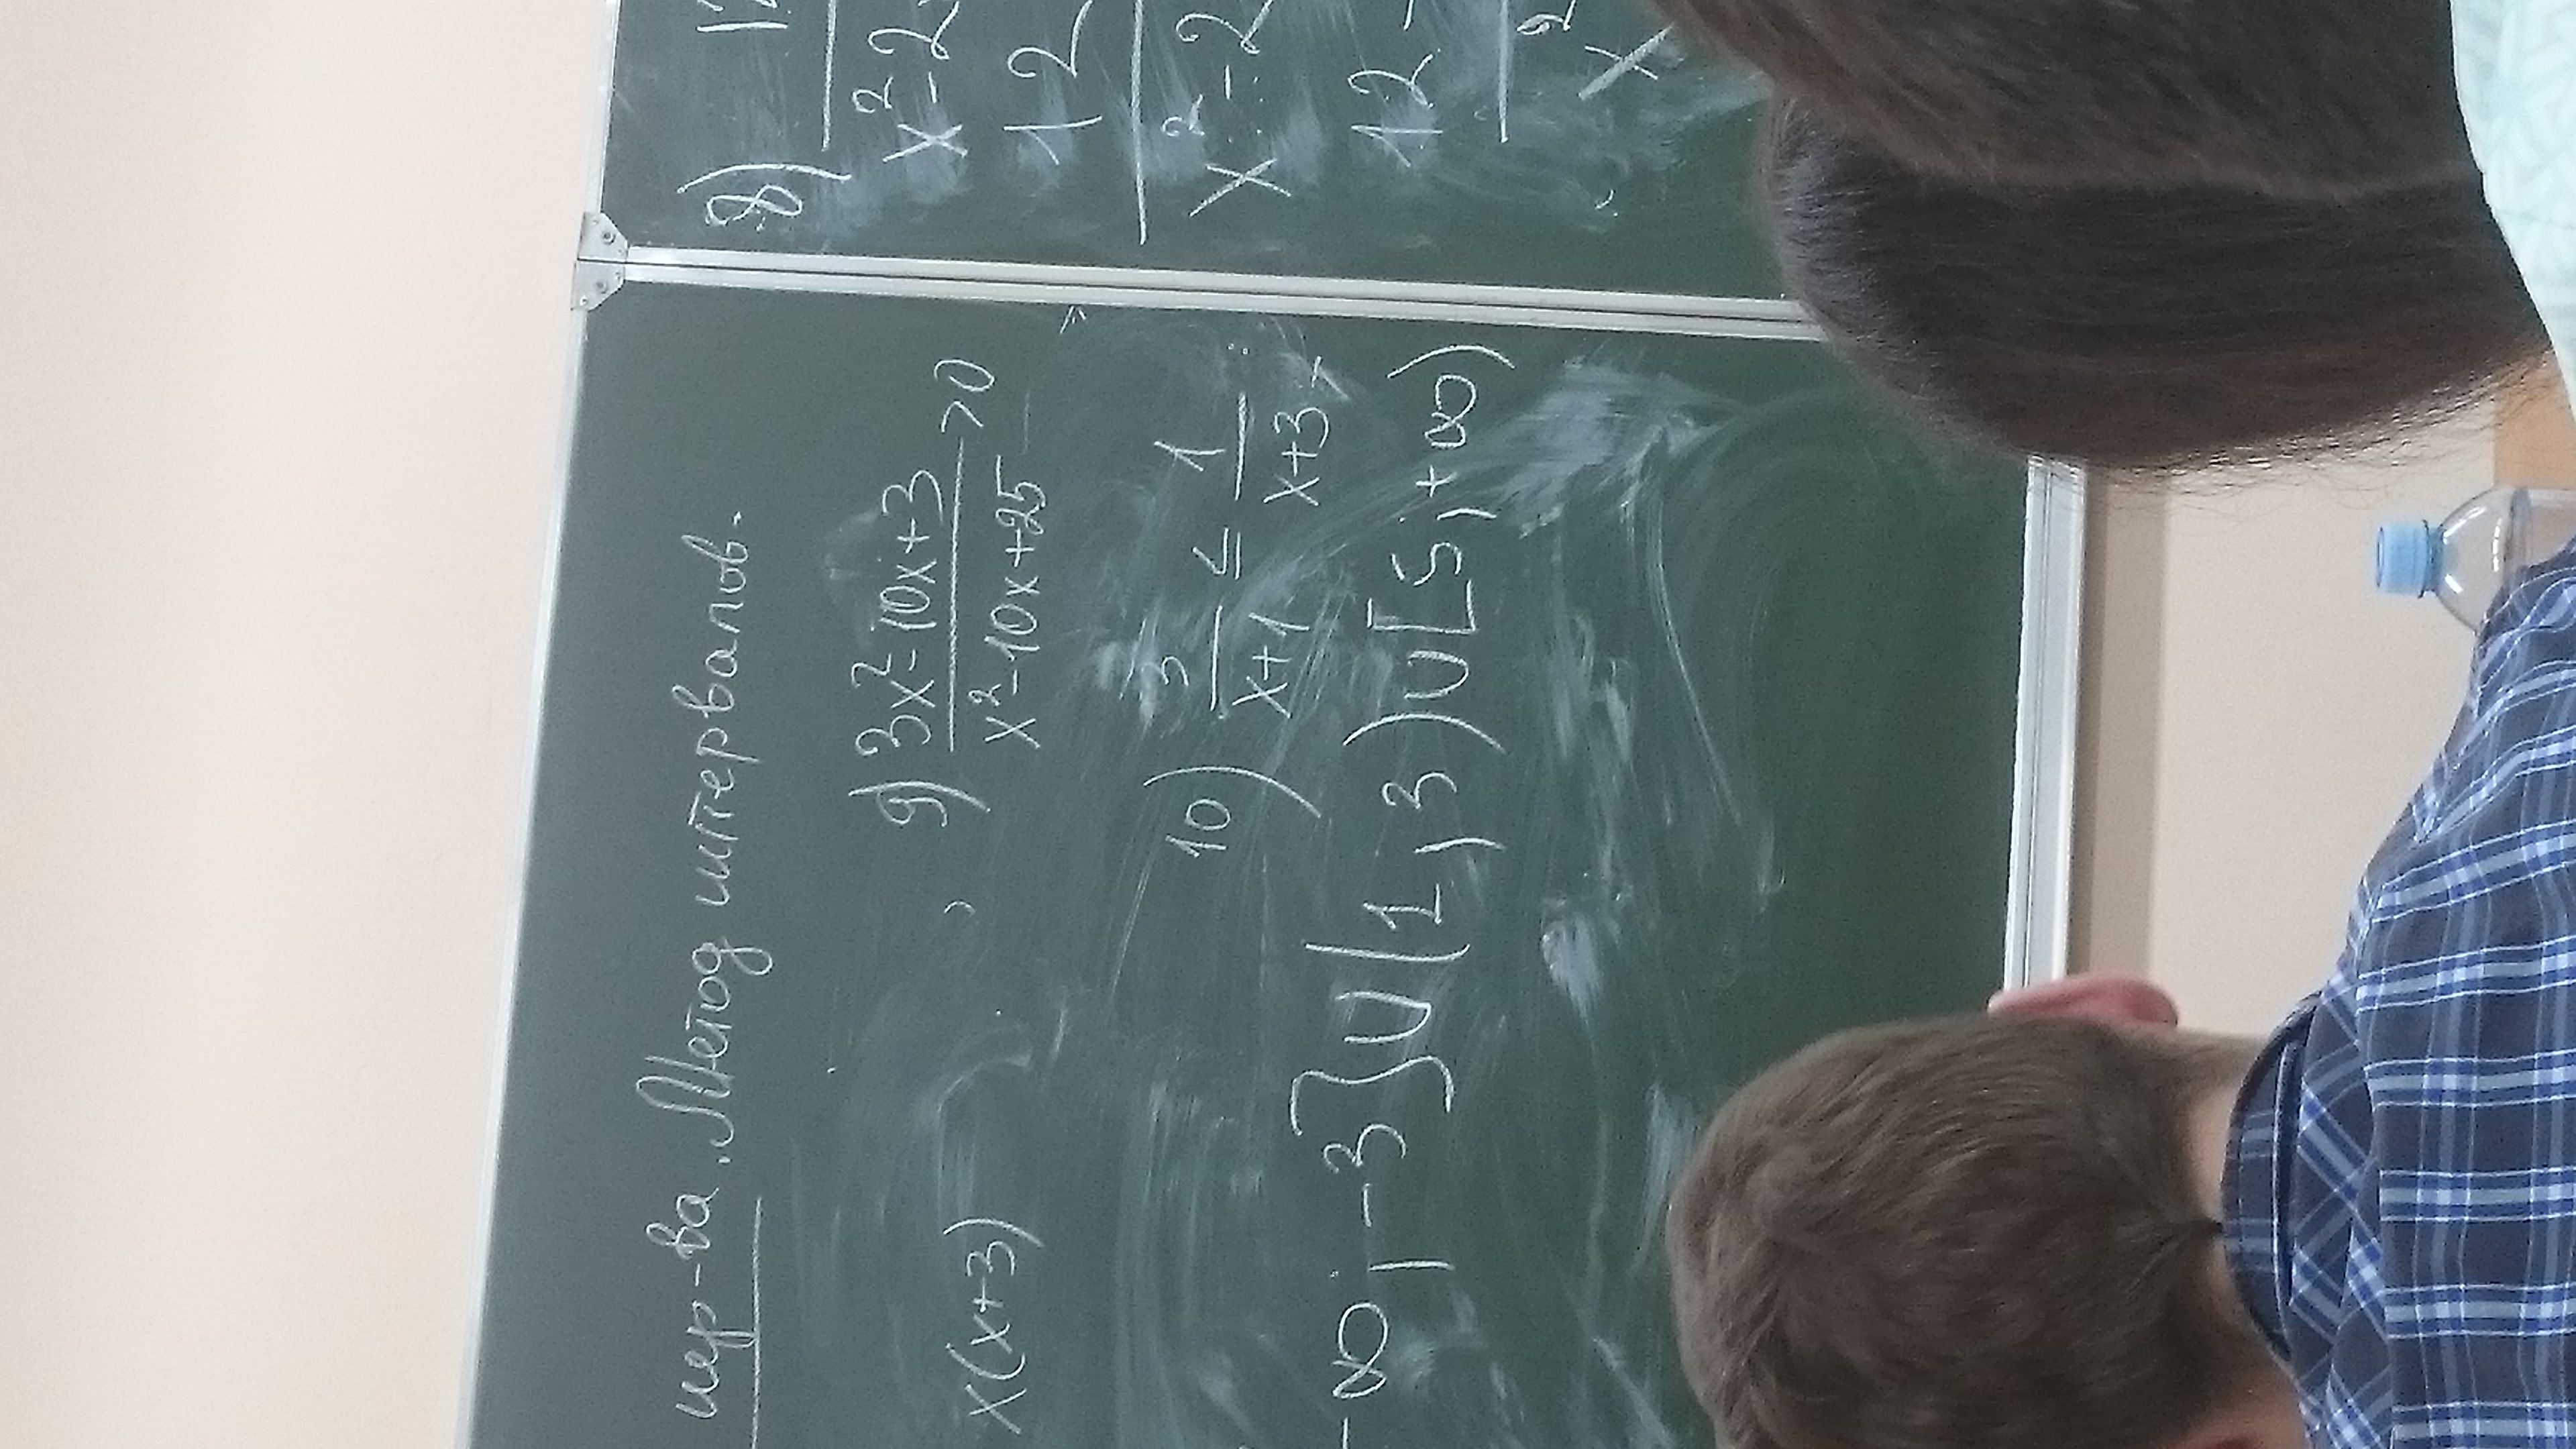 нер-ва. Метод интервалов.
x(x+3)
9) 3x²-10x+3
x²-10x+25
>0
10) 3
x+1
≤
1
x+3
-∞; -3]∪(1; 3)∪[5; +∞)
8)
x²-2
12
x²-2
12-
x²